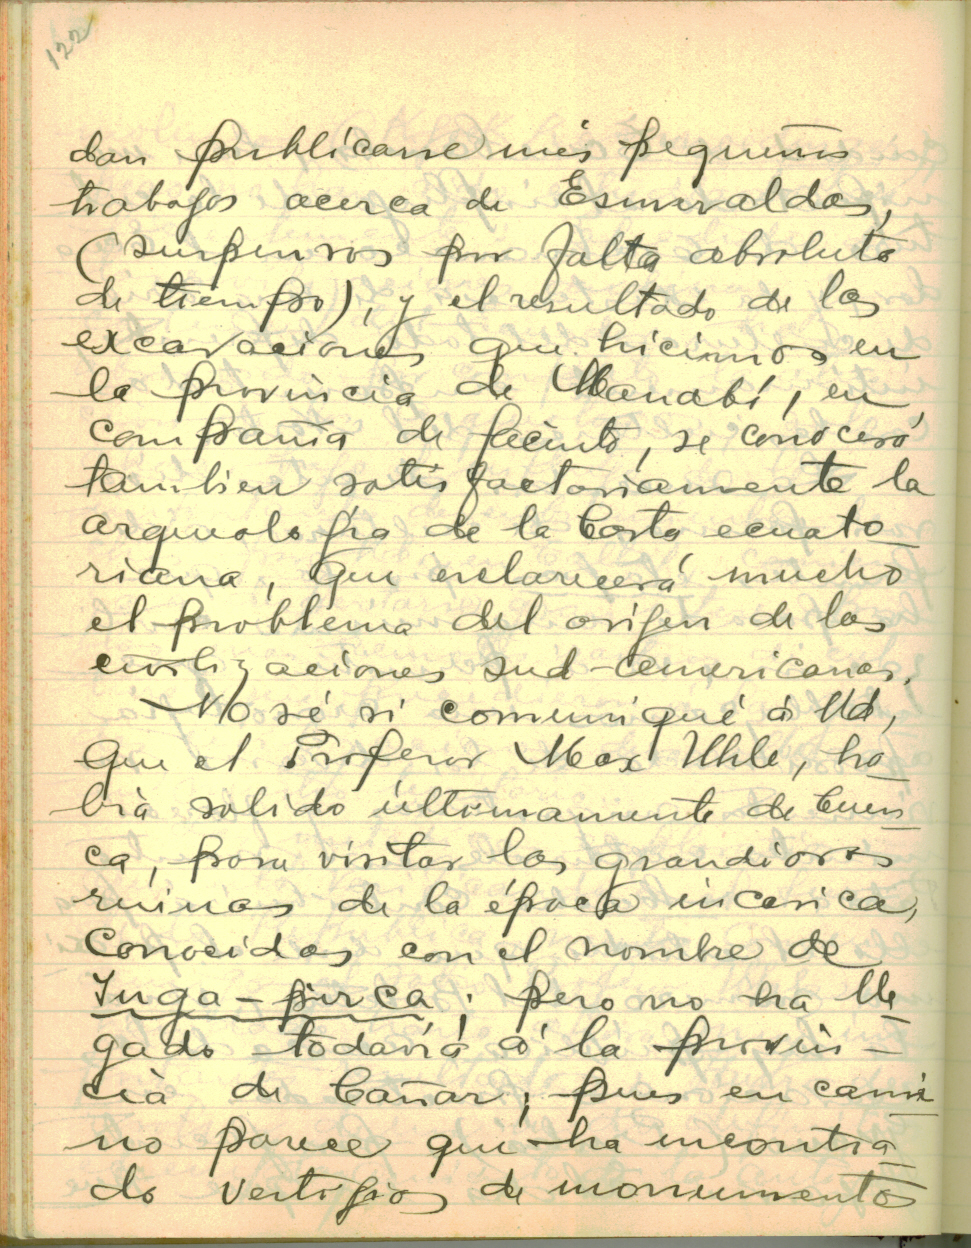 122
dan publicarse mis pequeños
trabajos acerca de Esmeraldas,
(suspensos por falta absoluta
de tiempo), y el resultado de las
excavaciones que hicimos en
la provincia de Manabí, en
compañía de Jacinto, se conocerá
tambien satisfactoriamente la
arqueología de la Costa ecuato
riana, que esclarecerá mucho
el problema del orígen de las
civilizaciones sud-americanas.
No sé si comuniqué á Ud,
que el Profesor Max Uhle, ha
bía salido últimamente de Cuen
ca, para visitar las grandiosas
ruinas de la época incásica,
conocidas con el nombre de
Inga-pirca; pero no ha lle
gado todavía á la provin-
cia de Cañar; pues en cami
no parece que ha encontra
do vestigios de monumentos